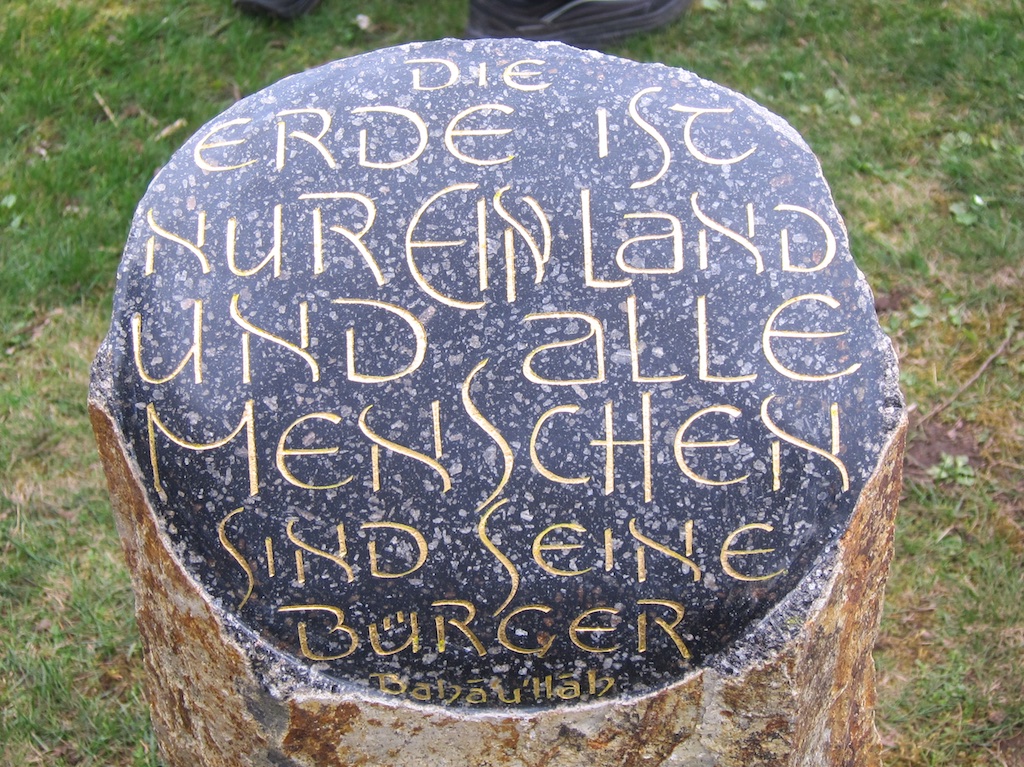 DIE
ERDE IST
NUR EIN LAND
UND ALLE
MENSCHEN
SIND SEINE
BÜRGER
Bahá'u'lláh